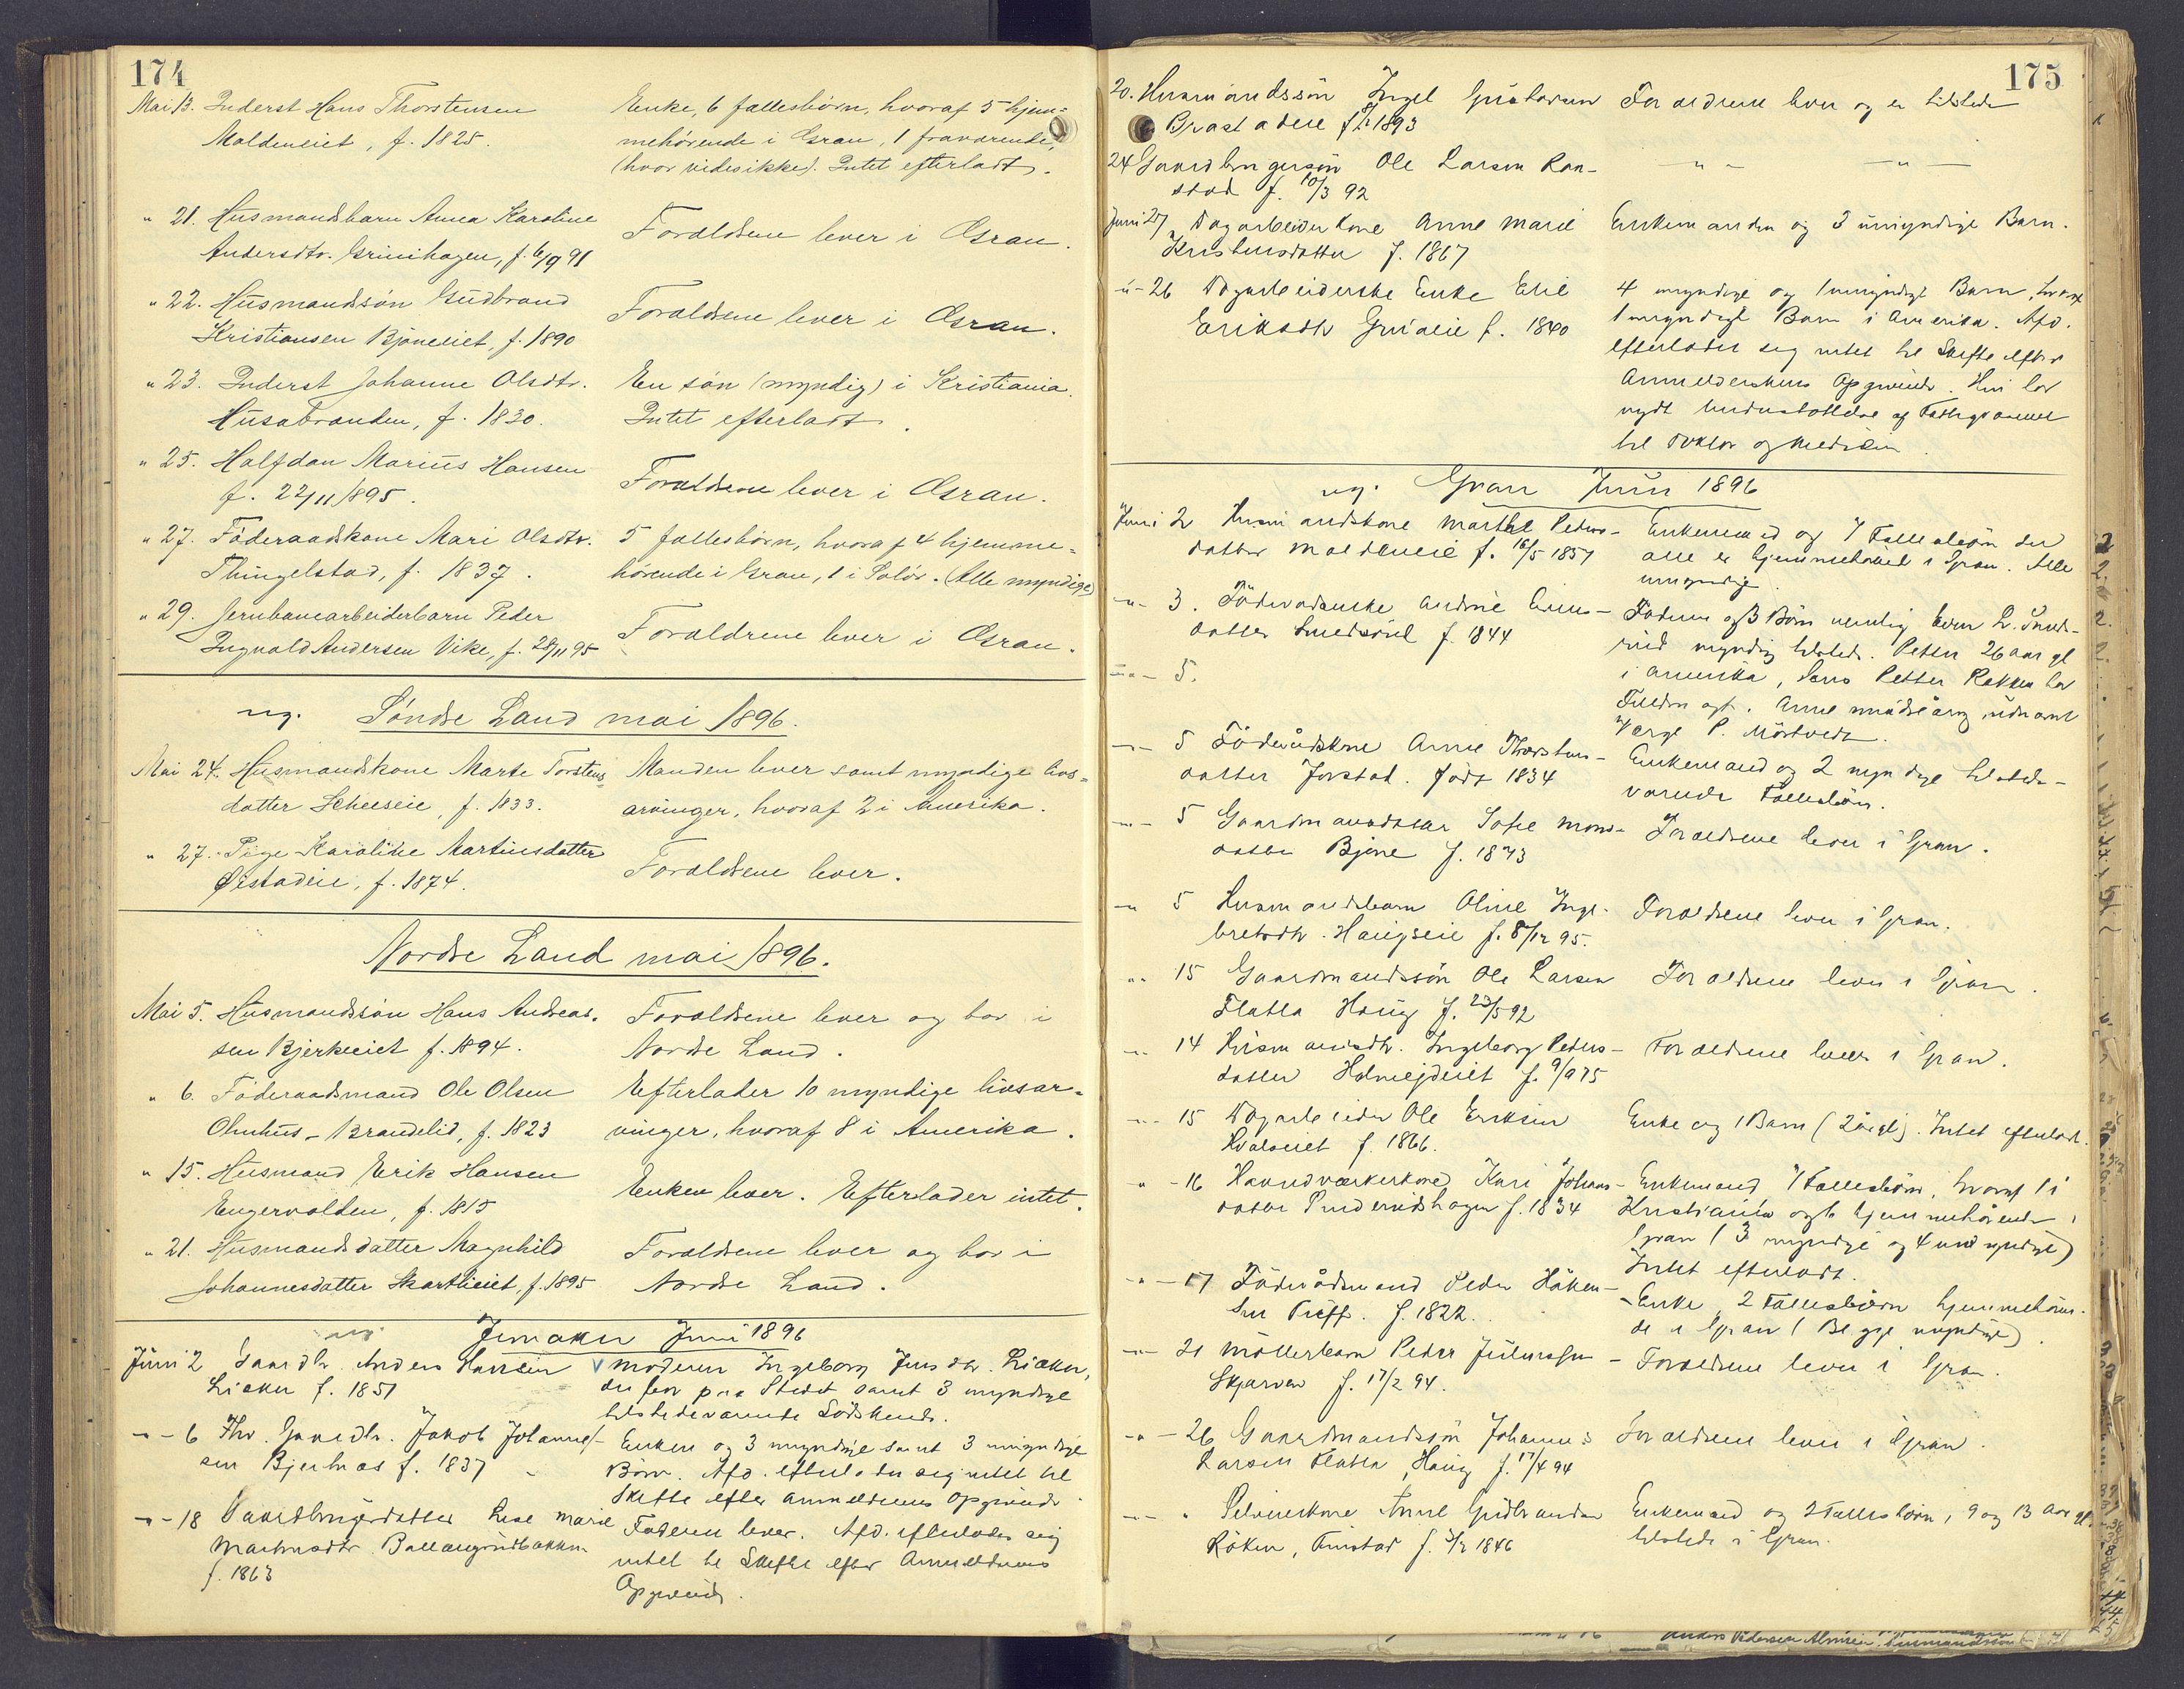 174
Mai 13. Inderst Hans Thorstensen
Moldeneiet, f. 1825.
Enke, 6 fællesbörn, hvoraf 5 hjem-
mehörende i Gran, 1 fraværende,
(hvor vides ikke). Intet efterladt.
" 21. Husmandsbarn Anna Karoline
Andersdtr. Grinihagen, f. 6/9 91
Forældrene lever i Gran.
" 22. Husmandssön Gudbrand
Kristiansen Bjöneeiet, f. 1890
Forældrene lever i Gran.
" 23. Inderst Johanne Olsdtr.
Husabranden, f. 1830.
En sön (myndig) i Kristiania.
Intet efterladt.
" 25. Halfdan Marius Hansen
f. 22/11 1895.
Forældrene lever i Gran.
" 27. Föderaadskone Mari Olsdtr.
Thingelstad, f. 1837.
5 fællesbörn, hvoraf 4 hjemme-
hörende i Gran, 1 i Solör. (Alle myndige)
" 29. Jernbanearbeiderbarn Peder
Ingvald Andersen Vike, f. 28/11 95
Forældrene lever i Gran.
ng. Söndre Land mai 1896.
Mai 24. Husmandskone Marte Torstens
datter Scheeseie, f. 1833.
Manden lever samt myndige livs-
arvinger, hvoraf 2 i Amerika.
" 27. Pige Karoline Martinsdatter
Östadeie, f. 1874.
Forældrene lever.
Nordre Land mai 1896.
Mai 5. Husmandssön Hans Andreas-
sen Bjerkeeiet f. 1894.
Forældrene lever og bor i
Nordre Land.
" 6. Föderaadsmand Ole Olsen
Olmhus-Brandelid, f. 1823
Efterlader 10 myndige livsar-
vinger, hvoraf 8 i Amerika.
" 15. Husmand Erik Hansen
Engervolden, f. 1815
Enken lever. Efterlader intet.
" 21. Husmandsdatter Magnhild
Johannesdatter Skartlieiet, f. 1895
Forældrene lever og bor i
Nordre Land.
ng Jevnaker Juni 1896
Juni 2 Gaardbr. Anders Hansen
Lieker f. 1851
Moderen Ingeborg Jensdtr. Lieker,
der bor paa Stedet samt 3 myndige
tilstedeværende Sødskende.
-"- 6 Fhv. Gaardbr. Jakob Johannes-
sen Bjertnæs f. 1837
Enken og 3 myndige samt 3 umyndige
Börn. Afd. efterlader sig intet til
Skifte efter Anmelderens Opgivende.
-"- 18 Gaardbrugerdatter Lise Marie
Martinsdtr. Ballangrudbakken
f. 1863
Faderen lever. Afd. efterlader sig
intet til Skifte efter Anmelderens
Opgivende.
175
20. Husmandssön Ingel Gustavsen
Brastadeie f 1893
Forældrene lever og er tilstede
24 Gaardbrugersön Ole Larsen Ran-
stad f. 10/3 92
" - -"-
Juni 27 Dagarbeiderkone Anne Marie
Kristensdatter f. 1867
Enkemanden og 3 umyndige Barn.
-"- 26 Dagarbeiderske Enke Elie
Eriksdtr f. 1840
4 myndige og 1 umyndigt Barn, hvoraf
1 myndigt Barn i Amerika. Afd.
efterlader sig intet til Skifte efter
Anmelderskens Opgivende. Hun har
nydt Understöttelse af Fattigvæsenet
til Doktor og Medicin.
ng. Gran Juni 1896
Juni 2 Husmandskone Marthe Peders-
datter Moldeneie f. 16/5 1857
Enkemand og 7 Fællesbörn der
alle er hjemmehörende i Gran. Alle
umyndige.
-"- 3. Föderadenke Andrine Evens-
datter Smedsrud f. 1844
Faderen og 3 Börn nemlig Even L. Smed-
rud myndig tilstede. Petter 26 aar gl
i Amerika, Hans Petter Rekken har
Fuldm. agt. Anne mindreårig, udnævnt
Verge P. Mörtvedt.
-"- 5.
-"- 5 Föderådskone Anne Thorstens-
datter Jorstad. född 1834
Enkemand og 2 myndige tilstede-
værende Fællesbörn.
-"- 5 Gaardmandsdatter Sofie Mons-
datter Bjone f. 1873
Forældrene lever i Gran.
-"- 5 Husmandsbarn Oline Inge-
bretsdtr. Haugseie f. 8/12 95.
Forældrene lever i Gran.
-"- 15 Gaardmandssön Ole Larsen
Flatla Haug f. 23/5 92
Forældrene lever i Gran.
-"- 14 Husmandsdtr. Ingeborg Peders-
datter Holmejdeiet f. 9/9 75
Forældrene lever i Gran.
-"- 15 Dagarbeider Ole Eriksen
Hvalseiet f. 1866.
Enke og 1 Barn (2 år gl). Intet efterladt.
-"- 16 Haandværkerkone Kari Johans-
datter f. 1834
Enkemand 7 Fællesbörn, hvoraf 1 i
Kristiania og 6 hjemmehörende i
Gran (3 myndige og 4 umyndige)
Intet efterladt.
-"- 17 Föderådsmand Peder Håken-
sen Præst. f. 1822.
Enke, 2 Fællesbörn hjemmehören-
de i Gran (Begge myndige).
-"- 21 Möllerbarn Peder Juliussen
Skjarven f. 17/2 94.
Forældrene lever i Gran.
-"- 26 Gaardmandssön Johannes
Larsen Flatla, Haug f. 17/4 94
Forældrene lever i Gran.
-"- " Anne Gudbrandsdtr
Röken, Finstad f. 3/2 1846
Enkemand og 2 Fællesbörn, 9 og 13 aar gl.
tilstede i Gran.
Anders Pedersen